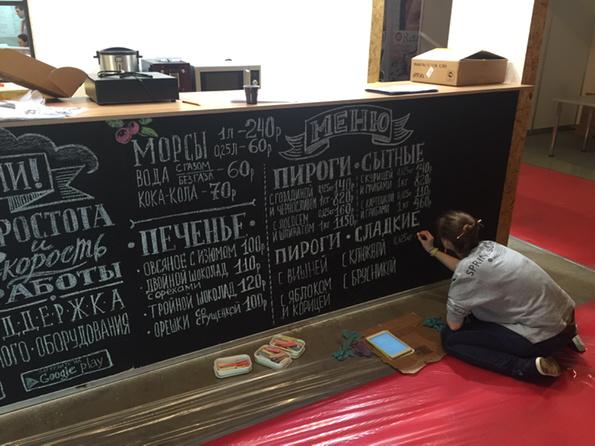 ЛИ!
РОСТОТА
И
СКОРОСТЬ
РАБОТЫ
ДДЕРЖКА
НОГО · ОБОРУДОВАНИЯ
Google play
МОРСЫ 1л - 240р
0,25л - 60р
ВОДА С ГАЗОМ
БЕЗ ГАЗА - 60р
КОКА-КОЛА - 70р
· ПЕЧЕНЬЕ ·
· ОВСЯНОЕ С ИЗЮМОМ 100р
· ДВОЙНОЙ ШОКОЛАД 110р
С ОРЕХАМИ
· ТРОЙНОЙ ШОКОЛАД 120р
· ОРЕШКИ СО СГУЩЕНКОЙ 100р
МЕНЮ
ПИРОГИ · СЫТНЫЕ
С ГОВЯДИНОЙ И ЧЕРНОСЛИВОМ
С ЛОСОСЕМ И ШПИНАТОМ 1кг 1150
С КУРИЦЕЙ И ГРИБАМИ
С КАРТОШКОЙ И ГРИБАМИ
ПИРОГИ · СЛАДКИЕ
С ВИШНЕЙ
С ЯБЛОКОМ И КОРИЦЕЙ
С КЛЮКВОЙ
С БРУСНИКОЙ